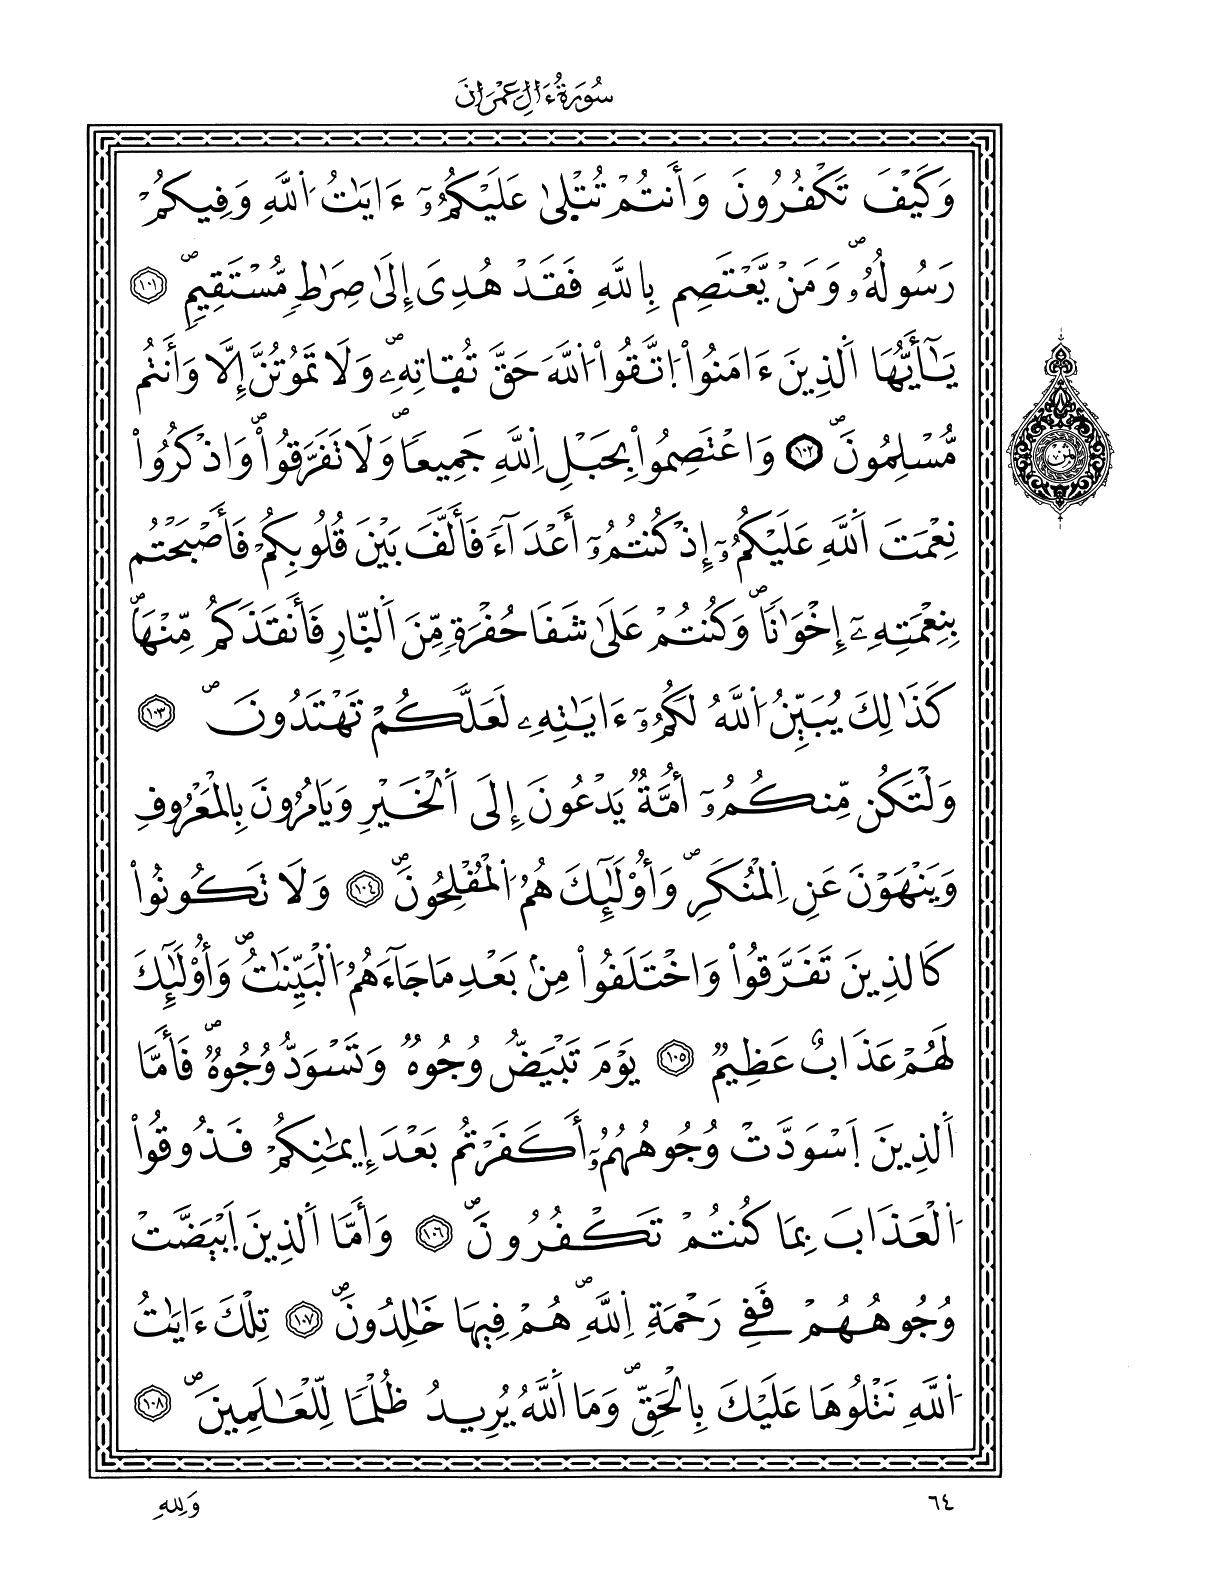 سُورَةُ ءَالِ عِمْرَانَ
وَكَيْفَ تَكْفُرُونَ وَأَنتُمْ تُتْلَىٰ عَلَيْكُمُۥٓ ءَايَٰتُ اُ۬للَّهِ وَفِيكُمْ
رَسُولُهُۥۖ وَمَنْ يَّعْتَصِم بِاللَّهِ فَقَدْ هُدِيَ إِلَىٰ صِرَٰطٖ مُّسْتَقِيمٖۖ ١٠١
يَٰٓأَيُّهَا اَ۬لذِينَ ءَامَنُواْ اُ۪تَّقُواْ اُ۬للَّهَ حَقَّ تُقَاتِهِۦۖ وَلَا تَمُوتُنَّ إِلَّا وَأَنتُم
مُّسْلِمُونَۖ ١٠٢ وَاعْتَصِمُواْ بِحَبْلِ اِ۬للَّهِ جَمِيعاٗۖ وَلَا تَفَرَّقُواْۖ وَاذْكُرُواْ
نِعْمَتَ اَ۬للَّهِ عَلَيْكُمُۥٓ إِذْ كُنتُمُۥٓ أَعْدَآءٗ فَأَلَّفَ بَيْنَ قُلُوبِكُمْ فَأَصْبَحْتُم
بِنِعْمَتِهِۦٓ إِخْوَٰناٗۖ وَكُنتُمْ عَلَىٰ شَفَا حُفْرَةٖ مِّنَ اَ۬لنّ۪ارِ فَأَنقَذَكُم مِّنْهَاۖ
كَذَٰلِكَ يُبَيِّنُ اُ۬للَّهُ لَكُمُۥٓ ءَايَٰتِهِۦ لَعَلَّكُمْ تَهْتَدُونَۖ ١٠٣
وَلْتَكُن مِّنكُمُۥٓ أُمَّةٞ يَدْعُونَ إِلَى اَ۬لْخَيْرِ وَيَامُرُونَ بِالْمَعْرُوفِ
وَيَنْهَوْنَ عَنِ اِ۬لْمُنكَرِۖ وَأُوْلَٰٓئِكَ هُمُ اُ۬لْمُفْلِحُونَۖ ١٠٤ وَلَا تَكُونُواْ
كَالذِينَ تَفَرَّقُواْ وَاخْتَلَفُواْ مِنۢ بَعْدِ مَا جَآءَهُمُ اُ۬لْبَيِّنَٰتُۖ وَأُوْلَٰٓئِكَ
لَهُمْ عَذَابٌ عَظِيمٞ ١٠٥ يَوْمَ تَبْيَضُّ وُجُوهٞ وَتَسْوَدُّ وُجُوهٞۖ فَأَمَّا
اَ۬لذِينَ اَ۪سْوَدَّتْ وُجُوهُهُمُۥٓ أَكَفَرْتُم بَعْدَ إِيمَٰنِكُمْ فَذُوقُواْ
اُ۬لْعَذَابَ بِمَا كُنتُمْ تَكْفُرُونَۖ ١٠٦ وَأَمَّا اَ۬لذِينَ اَ۪بْيَضَّتْ
وُجُوهُهُمْ فَفِي رَحْمَةِ اِ۬للَّهِۖ هُمْ فِيهَا خَٰلِدُونَۖ ١٠٧ تِلْكَ ءَايَٰتُ
اُ۬للَّهِ نَتْلُوهَا عَلَيْكَ بِالْحَقِّۖ وَمَا اَ۬للَّهُ يُرِيدُ ظُلْماٗ لِّلْعَٰلَمِينَۖ ١٠٨
٦٤
وَلِلهِ